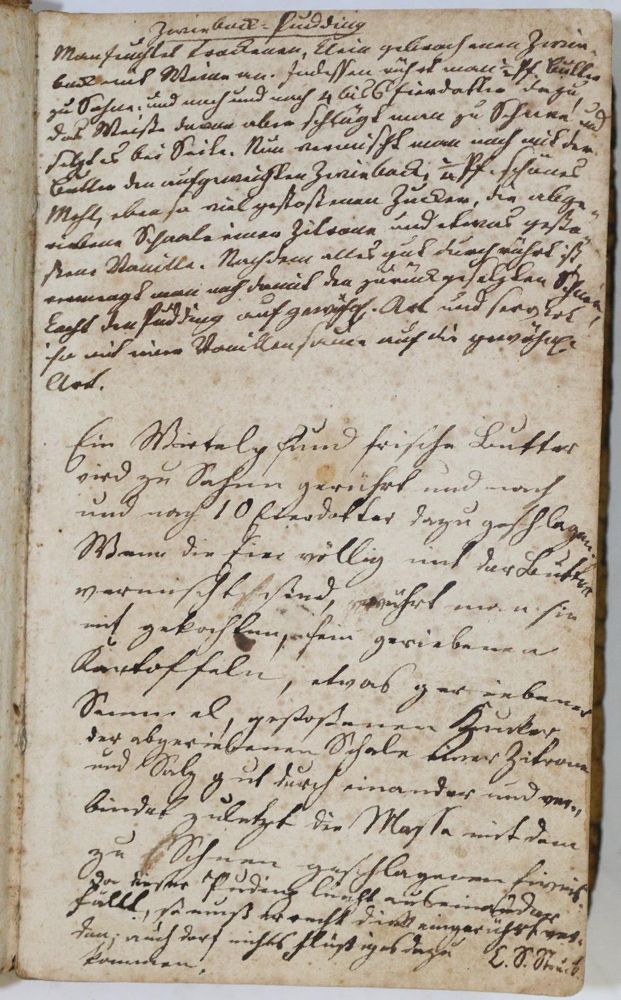 Zwieback-Pudding
Man feuchtet trockenen, klein gebrochenen Zwie-
back mit Weine an. Indessen rührt man Pf. Butter
zu Sahne und nach und nach 4 bis 5 Eierdotter dazu,
das Weiße davon aber schlägt man zu Schnee und
setzt es bei Seite. Nun vermischt man nach mit der
Butter den aufgeweichten Zwieback, Pf. schönes
Mehl, eben so viel gestoßenen Zucker, die abge-
riebene Schaale einer Zitrone und etwas gesto-
ßene Vanille. Nachdem alles gut durchrührt ist,
vermengt man noch damit den zurückgesetzten Schnee,
kocht den Pudding auf gewöhnl. Art und servirt
ihn mit einer Vanillensauce auf die gewöhnl.
Art.
Ein Viertelpfund frische Butter
wird zu Sahne gerührt und nach
und nach 10 Eierdotter dazu geschlagen.
Wenn die Eier völlig mit der Butter
vermischt sind, rührt man sie
mit gekochten, fein geriebenen
Kartoffeln, etwas geriebener
Semmel, gestoßenen Zucker
der abgeriebenen Schale einer Zitrone
und Salz gut durch einander und ver-
bindet zuletzt die Masse mit dem
zu Schnee geschlagenen Eiweis.
Da dieser Puding leicht auseinander
fällt, so muß er recht dick eingerührt wer-
den; auch darf nichts flüßiges dazu
kommen. L. S.